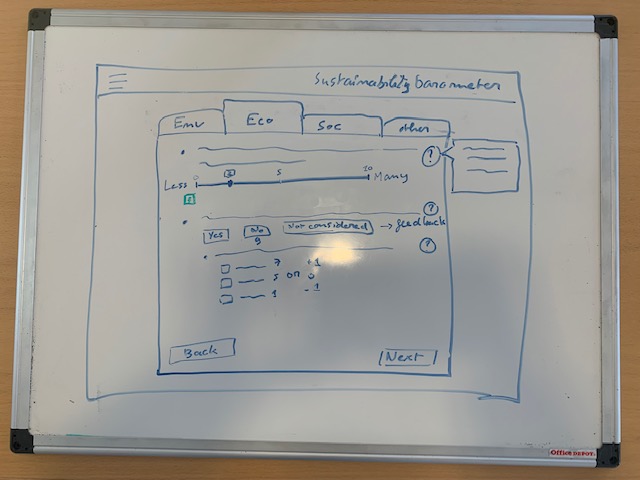 Sustainability barometer
Env Eco Soc other
?
Less 0 5 20 Many
Yes No Not considered → feedback
?
7 +1
5 or 0
1 -1
?
Back Next
Office Depot